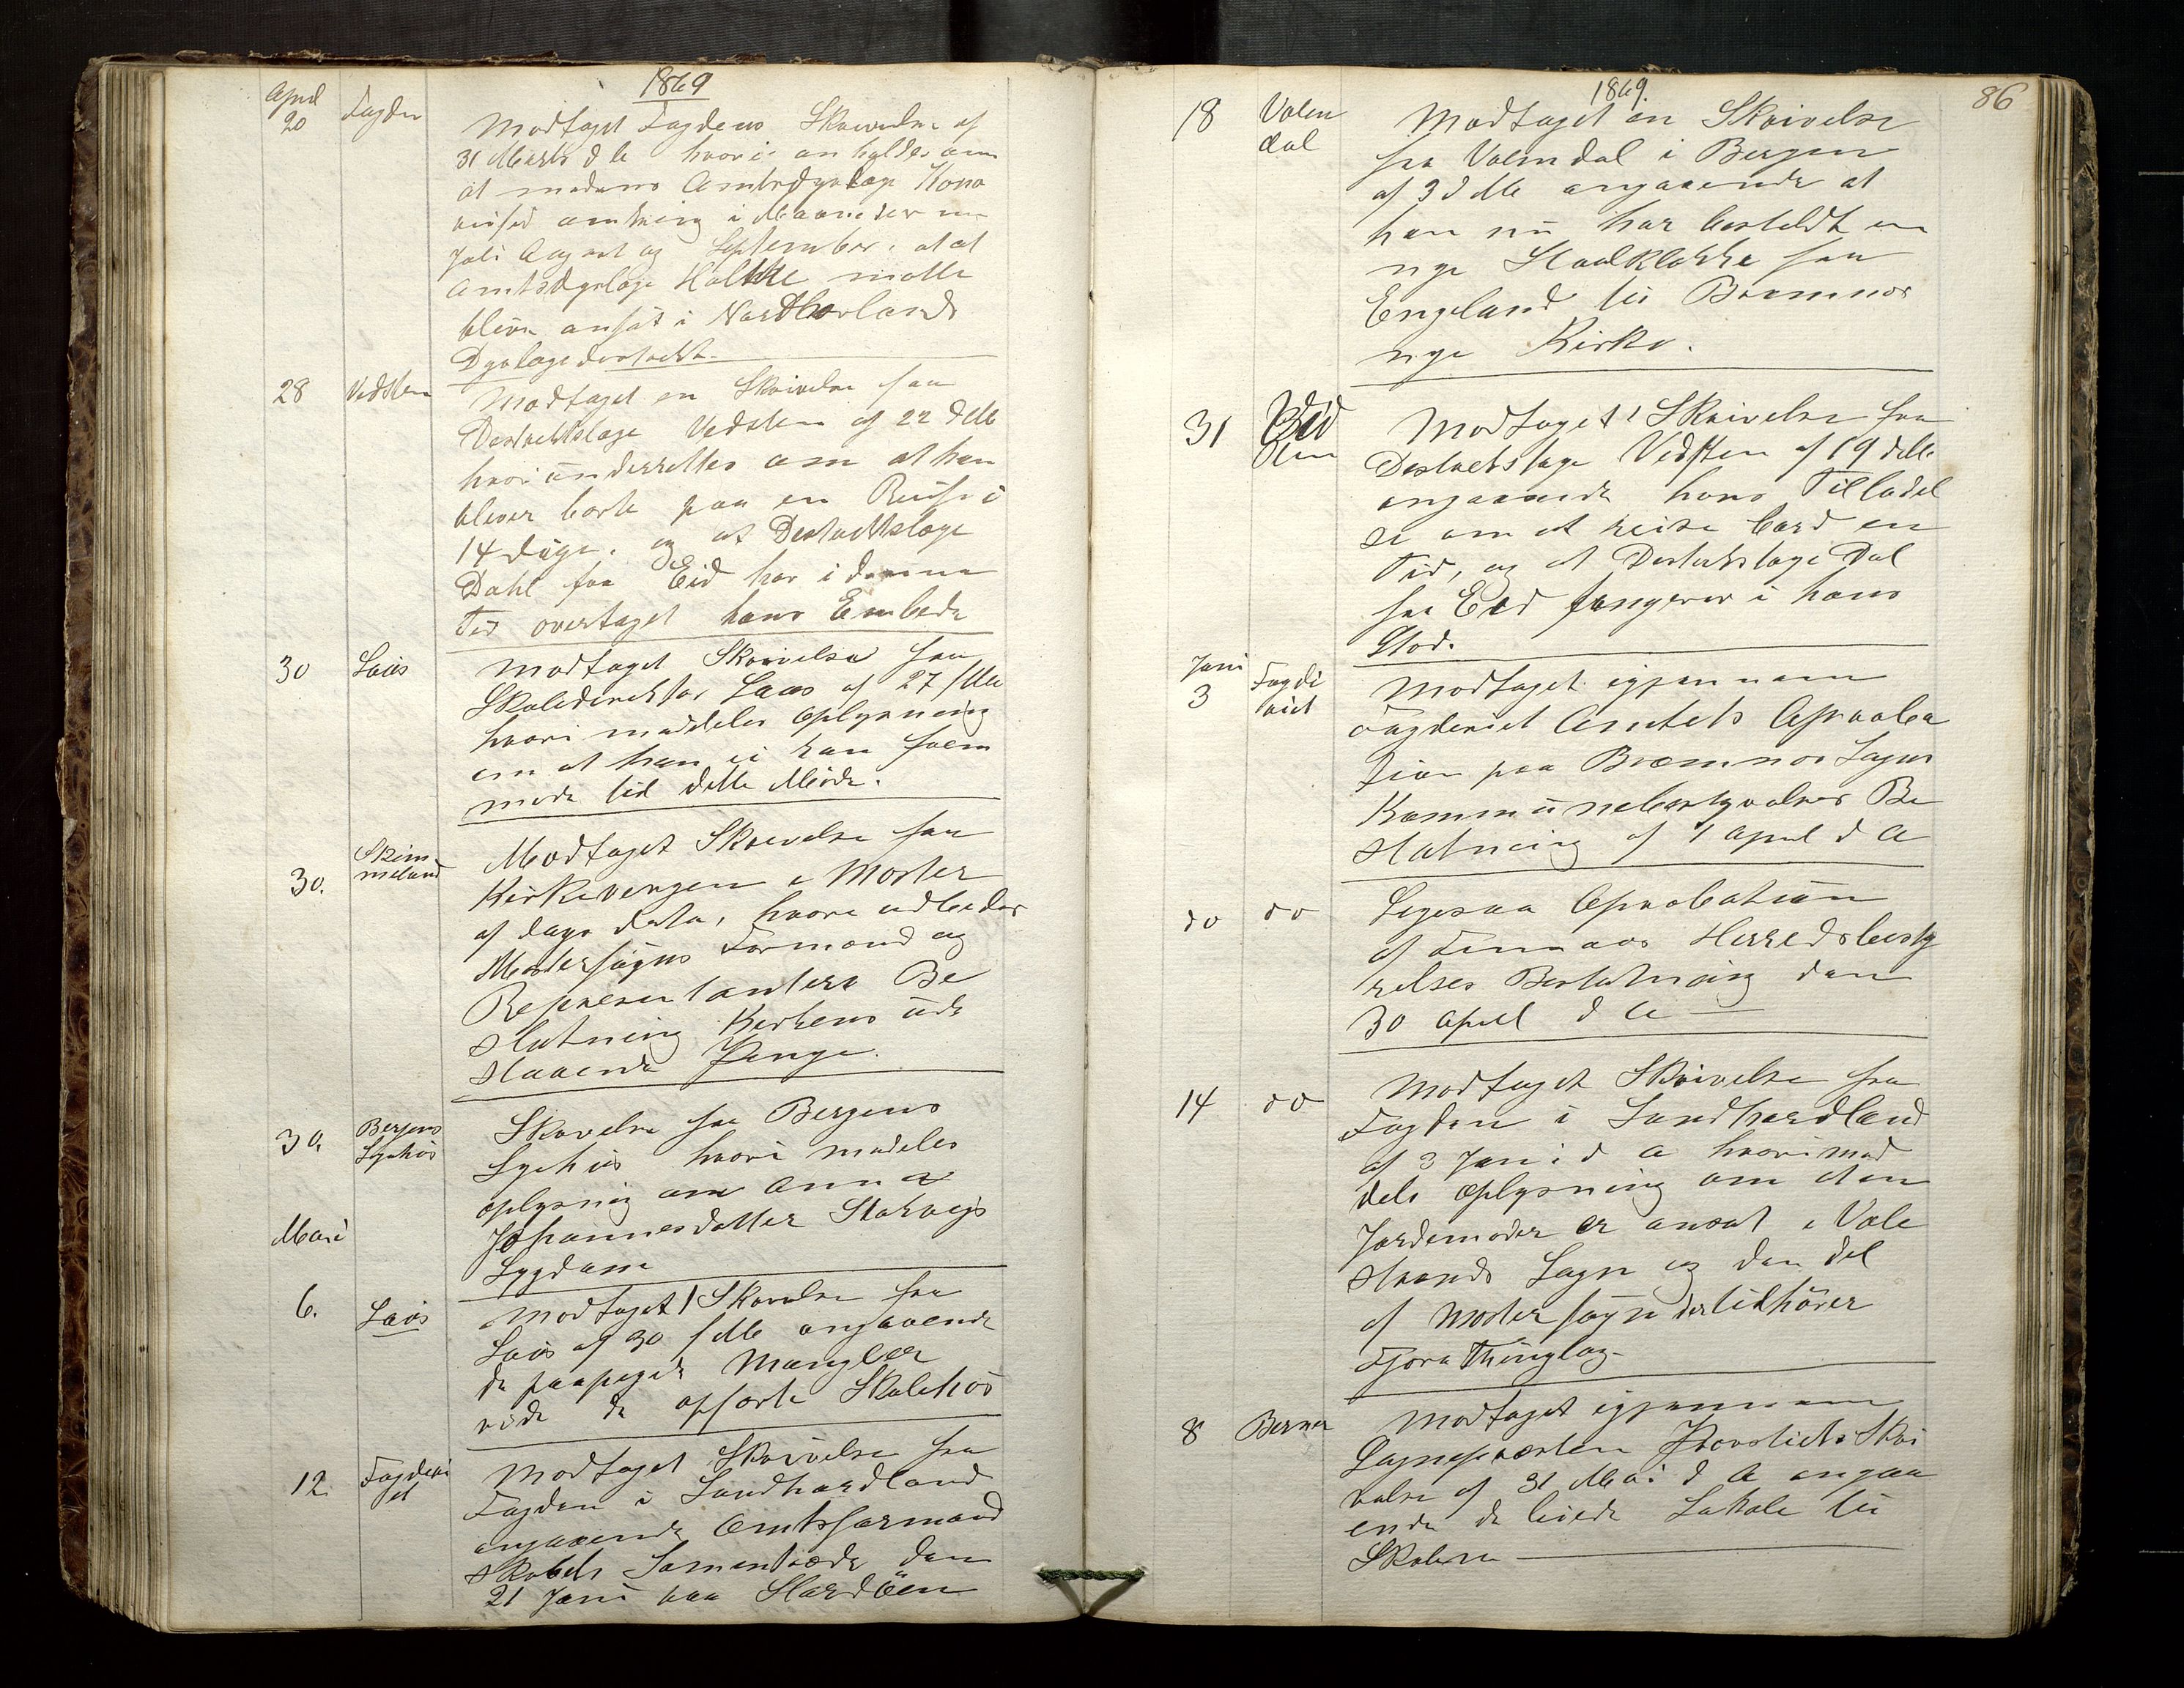 1869
April
20
Fogden
Modtaget Fogdens Skrivelse af
31 Marts d A hvori anholdes om
at medens Amtsdyrlæge
omkring i Maaneder
Juli August og September, at at
Amtsdyrlæge Holtke motte
blive ansat i Nordhorlands
Dyrlægedestrikt.
28
Vedsten
Modtaget en Skrivelse fra
Destriktslæge Vedsten af 22 d M
hvori underrettes om at han
bliver borte paa en Reise i
14 dage. og at Destriktslæge
Dahl fra Eid har i denne
Tid overtaget hans Embede
30
Laus
Modtaget Skrivelse fra
Skoledirektør Laus af 27 d M
hvori meddeles oplysning
om at han ei kan frem
møde til dette Møde.
30.
Skim
meland
Modtaget Skrivelse fra
Kirkevergen i Moster
af dags dato, hvori udbedes
Mostersogns Formænd og
Representantere Be
slutning Kirkens ude
staaende Penge.
30.
Bergens
Sychus
Skrivelse fra Bergens
Sychus hvori medeles
oplysnig om Anna
Johannesdatter Storvejs
Sygdom
Mai
6.
Laus
Modtaget 1 Skrivelse fra
Laus af 30 f M angaaende
de paapegede Mangler
vide de opførte Skolehus
12.
Fogderi
et
Modtaget Skrivelse fra
Fogden i Søndhordland
angaaende Amtsformand
skabets Samentræde den
21 Juni paa Stordøen
1869.
86
18
Valen
dal
Modtaget en Skrivelse
fra Valendal i Bergen
af 3 d M angaaende at
han nu har besteldt en
nye Staalklokke fra
Engeland til Bremnes
nye Kirke.
31
Vid
sten
Modtaget 1 Skrivelse fra
Destriktslæge Vidsten af 19 d M
angaaende hans Tilladel
se om at reise bord en
Tid, og at Destriktslæge Dal
fra Eid fungerer i hans
Sted.
Juni
3
Fogde
riet
Modtaget igjennem
Fogderiet Amtets Aproba
tion paa Bremnes Sogns
Kommunebestyrelses Be
slutning af 1 April d A
do
do
Ligesaa Aprobatiion
af Finnaas Herredsbesty
relses Beslutning den
30 April d A
14
do
Modtaget Skrivelse fra
Fogden i Søndhordland
af 3 Juni d A hvori med
dels oplysning om at en
Jordemoder er ansat i Vale
strands Sogn og den del
af Moster sogn der tilhører
Fjera Thinglag
8
Berner
Modtaget igjennem
Sognepræsten Provstiets Skri
velse af 31 Mai d A angaa
ende de leiede Lokale til
Skolerne